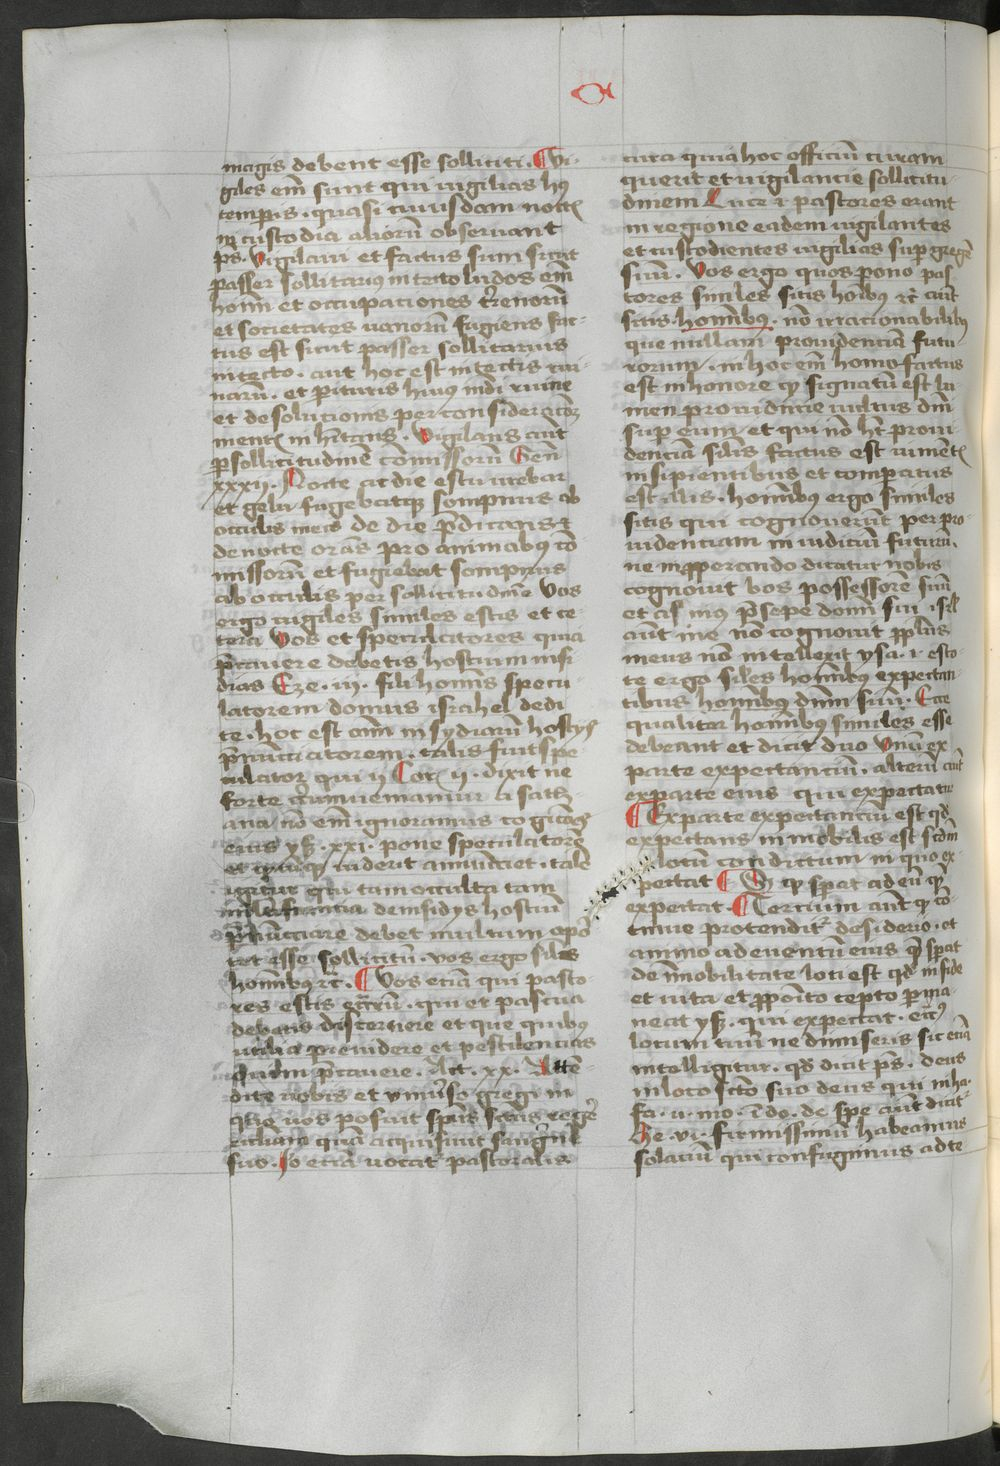 magis debent esse solliciti. Vi-
giles em̄ sunt qui vigilias hꝰ
temp̄is. quasi cuiusdam noctꝭ
in custodia aliorū observant
ps. Vigilavi et factus sum sicut
passer sollitarius in tecto ludos em̄
hoīm et occupationes t̄renorū
et societates vanorū fugiens fac-
tus est sicut passer sollitarius
in tecto. aut hoc est in tectis rui-
narū. et perituris huiꝰ mūdi ruine
et desolucionis per consideracōꝫ
mentꝭ in hītans. Vigilans aūt
ꝑ sollicitudinē cōmissorū Gen̄
xxxij. Nocte ac die estu urebar
et gelu fugebatqꝫ sompnus ab
occulis meis de die p̄dicans ⁊
de nocte orās pro animabꝰ cō-
missorū et fugiebat sompnus
ab occulis per sollicitudinē Vos
ergo vigiles similes estis et ce-
tera Vos et speculatores quia
p̄cavere debetis hostium insi-
dias Eze. iij. fili hominis specu-
latorem domus israhel dedi
te. hoc est om̄ insydiarū hostiꝭ
p̄nūciatorem. talis fuit spe-
culator qui ij Cor. ij. dixit ne
forte circumveniamur a sath-
ana nō em̄ ignoramus cogitacōes
eius ysꝫ. xxi. pone speculatorē
et quicūqꝫ viderit annunciet. tale
igitur qui tam occulta tam
de insidys hostiū
p̄nūcciare debet multum opor-
tet esse sollicitū. vos ergo siles
hominibꝰ ⁊c̄. Vos eciā qui pasto-
res estis qui et pascua
debetis discernere et que quibus
utilia previdere et pestilencias
p̄cavere. Act. xx. Atten-
dite vobis et universo gregi in
quo vos posuit sp̄us sc̄us regere
eccliam quā acquisivit sanguine
suo. Io eciā vocat pastoralis
cura quia hoc officiū curam
querit et vigilancie sollicitu-
dinem Luce 2 pastores erant
in regione eadem vigilantes
et custodientes vigilias sup gregē
suū. Vos ergo quos pono pas-
tores similes sitis hoībꝰ ⁊c̄ aūt
sitis. hominibꝰ. nō irracionabilibꝰ
que nullam providenciā futu-
rorum. in hoc em̄ homo factus
est in honore qꝫ signatū est lu-
men providencie vultus dn̄i
sup eum et qui nō ht̄ provi-
denciā similis factus est iumētꝭ
insipientibus et comparatus
est illis. hominibꝰ ergo similes
sitis qui cognoverūt per pro-
videnciam in iudiciū futurū.
ne inproperando dicatur nobis
cognovit bos possessorē suū
et asinus p̄sepe domini sui isrl̄
aūt me nō cognovit pp̄lus
meus nō intellexit ysa. 1 esto-
te ergo siles hominibꝰ expectan-
tibus hominibꝰ dn̄m suū. Ecce
qualiter hominibꝰ similes esse
debeant et dicit duo Unū ex
parte expectanciū. alterū aūt
ex parte eius qui expectatur
Ex parte expectanciū est qd̄
expectans inmobilis est scdm̄
locū condictum in quo ex-
pectat qꝫ sperat ad eū qꝫ
expectat. Tercium aūt qꝫ cō-
tinue protenditur desiderio. et
animo ad eventū eius quē sperat
de inmobilitate loci est qd̄ in fide
et vita et pp̄osito cepto perma-
neat ysꝫ. qui expectat. eiꝰ
locum tuū ne dimiseris sic eciā
intelligitur. qd̄ dicit ps. deus
in loco sc̄to suo deus qui inha-
fa. u. mo. ī do. de spe aūt dicitur
He. vi. firmissimū habeamus
solaciū qui confugimus ad te